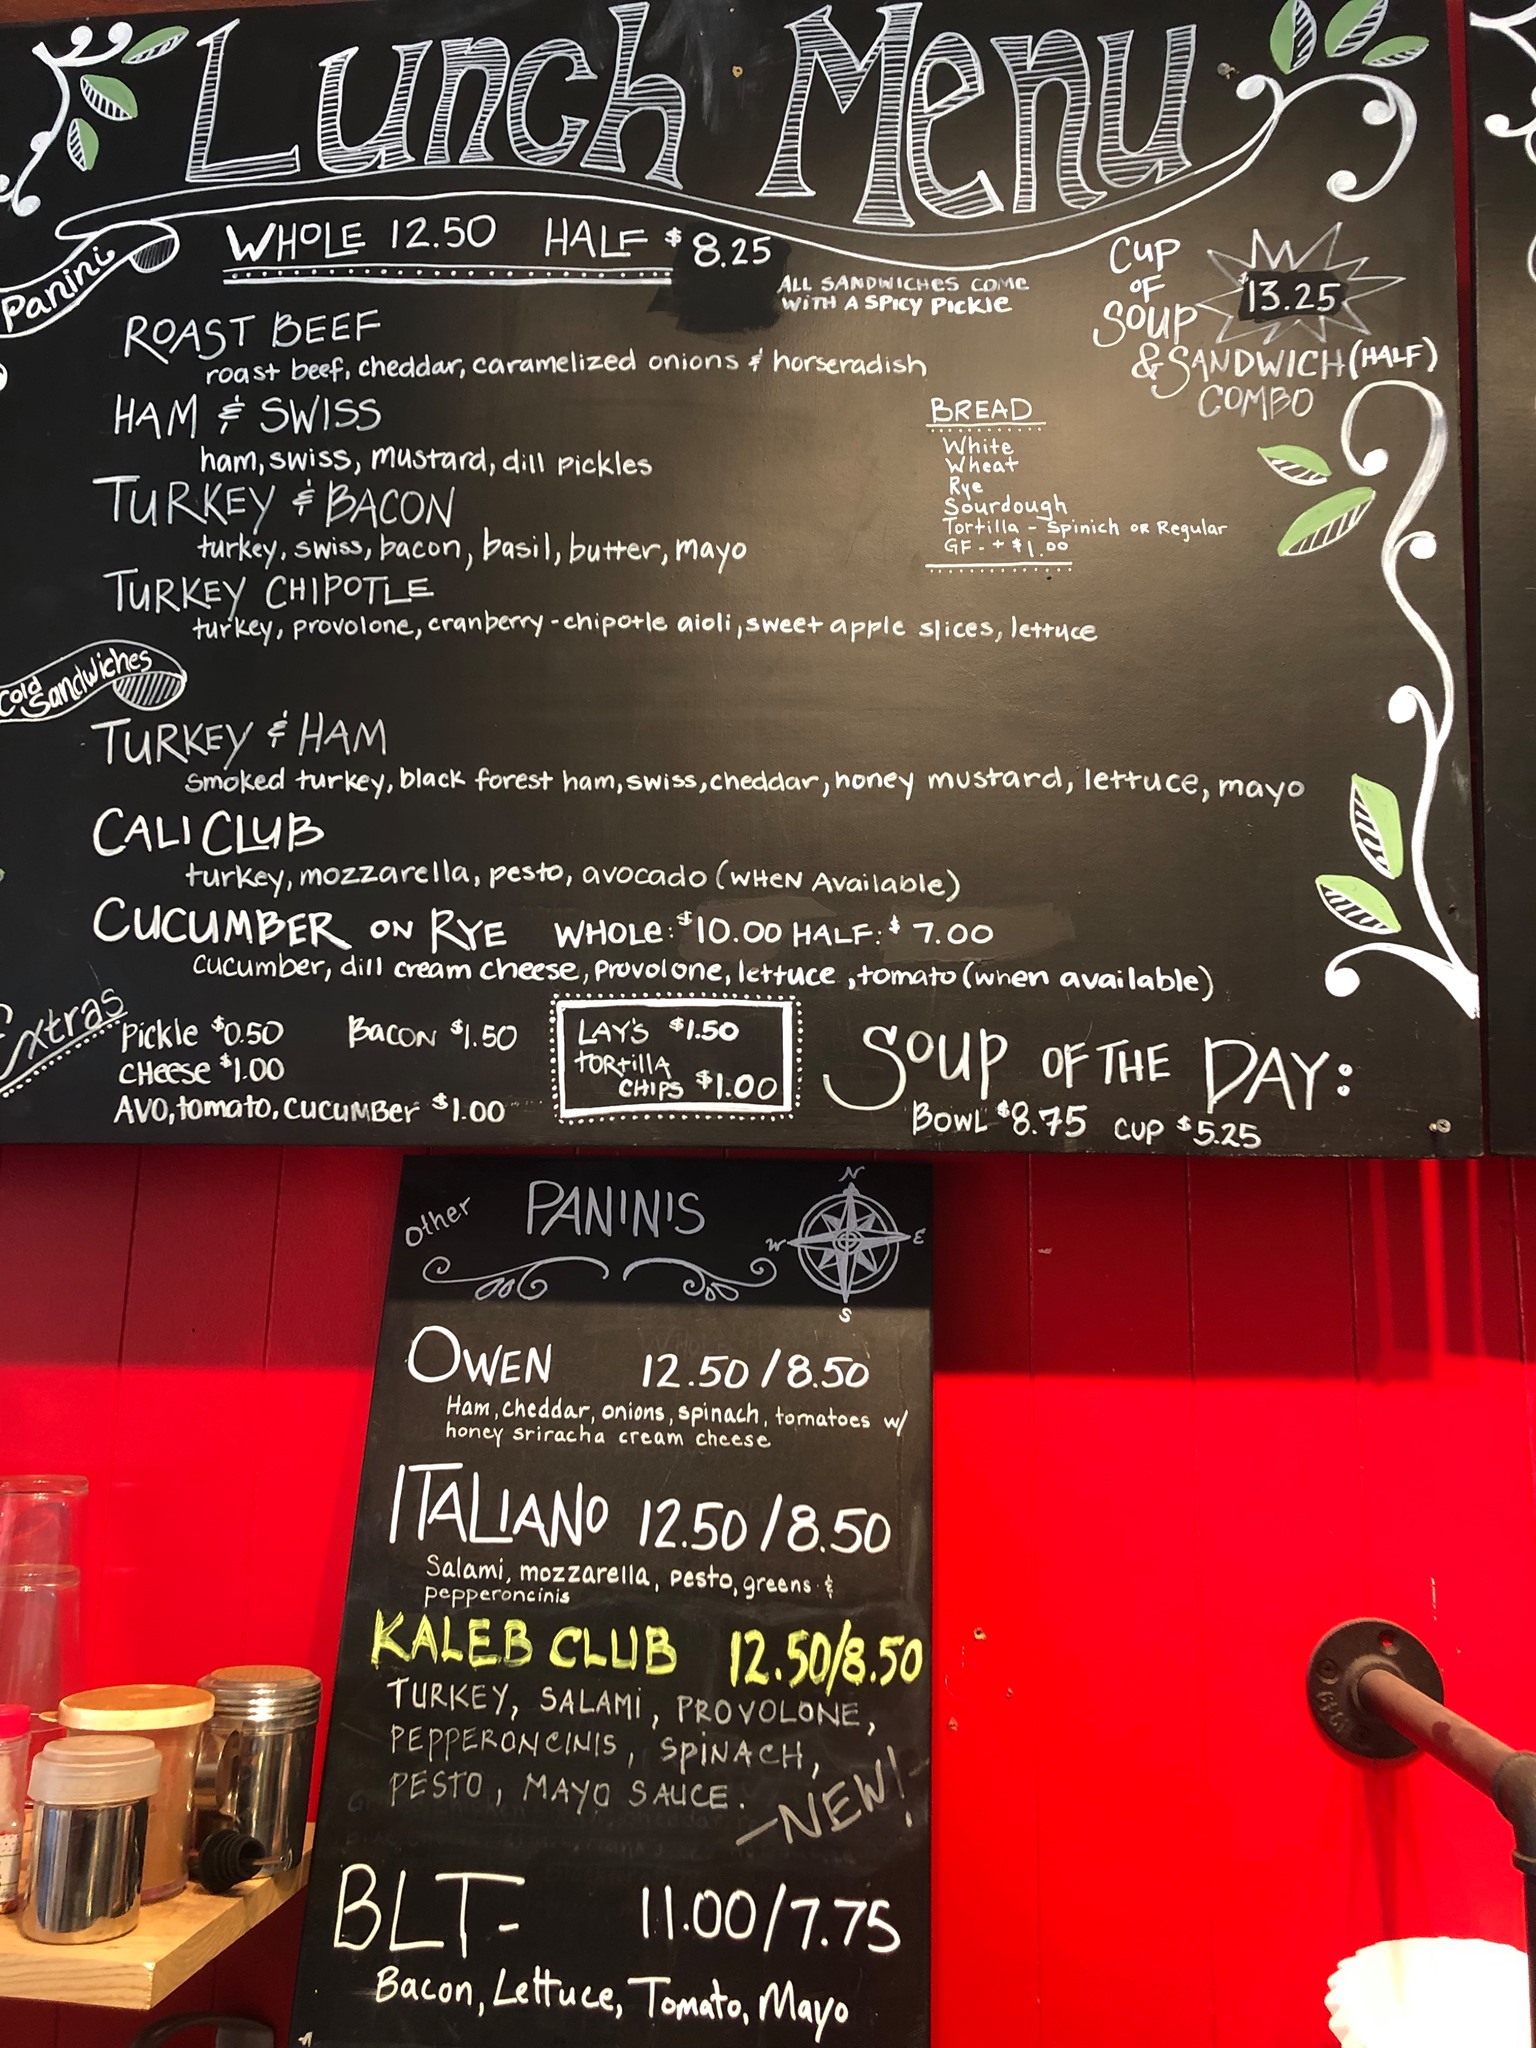 Lunch Menu
Panini
WHOLE 12.50 HALF $8.25
ALL SANDWICHES COME
WITH A SPICY PICKLE
CUP
OF
SOUP
$13.25
& SANDWICH (HALF)
COMBO
ROAST BEEF
roast beef, cheddar, caramelized onions & horseradish
HAM & SWISS
ham, swiss, mustard, dill pickles
TURKEY & BACON
turkey, swiss, bacon, basil, butter, mayo
TURKEY CHIPOTLE
turkey, provolone, cranberry-chipotle aioli, sweet apple slices, lettuce
BREAD
White
Wheat
Rye
Sourdough
Tortilla - Spinich OR Regular
GF - + $1.00
Cold
Sandwiches
TURKEY & HAM
smoked turkey, black forest ham, swiss, cheddar, honey mustard, lettuce, mayo
CALI CLUB
turkey, mozzarella, pesto, avocado (WHEN Available)
CUCUMBER ON RYE WHOLE: $10.00 HALF: $7.00
cucumber, dill cream cheese, provolone, lettuce, tomato (when available)
Extras
Pickle $0.50 BACON $1.50
CHeese $1.00
AVO, tomato, CUCUMBer $1.00
LAY'S $1.50
TORtillA
CHIPS $1.00
SOUP OF THE DAY:
BOWL $8.75 CUP $5.25
other PANINIS
N
W E
S
OWEN 12.50/8.50
Ham, cheddar, onions, spinach, tomatoes w/
honey sriracha cream cheese
ITALIANO 12.50/8.50
Salami, mozzarella, pesto, greens &
pepperoncinis
KALEB CLUB 12.50/8.50
TURKEY, SALAMI, PROVOLONE,
PEPPERONCINIS, SPINACH,
PESTO, MAYO SAUCE.
-NEW!-
BLT- 11.00/7.75
Bacon, Lettuce, Tomato, Mayo